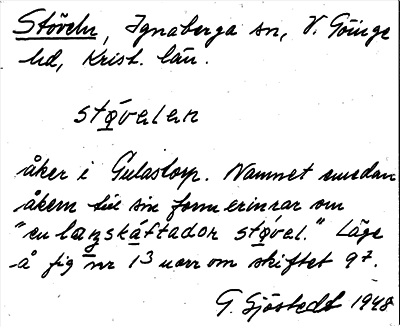 Stöveln, Ignaberga sn, V. Göinge
hd, Krist. län.
støvelen
åker i Gulastorp. Namnet emedan
åkern till sin form erinrar om
"en langskáftador støvel." Läge
på fig nr 13 norr om skiftet 97.
G. Sjöstedt 1948